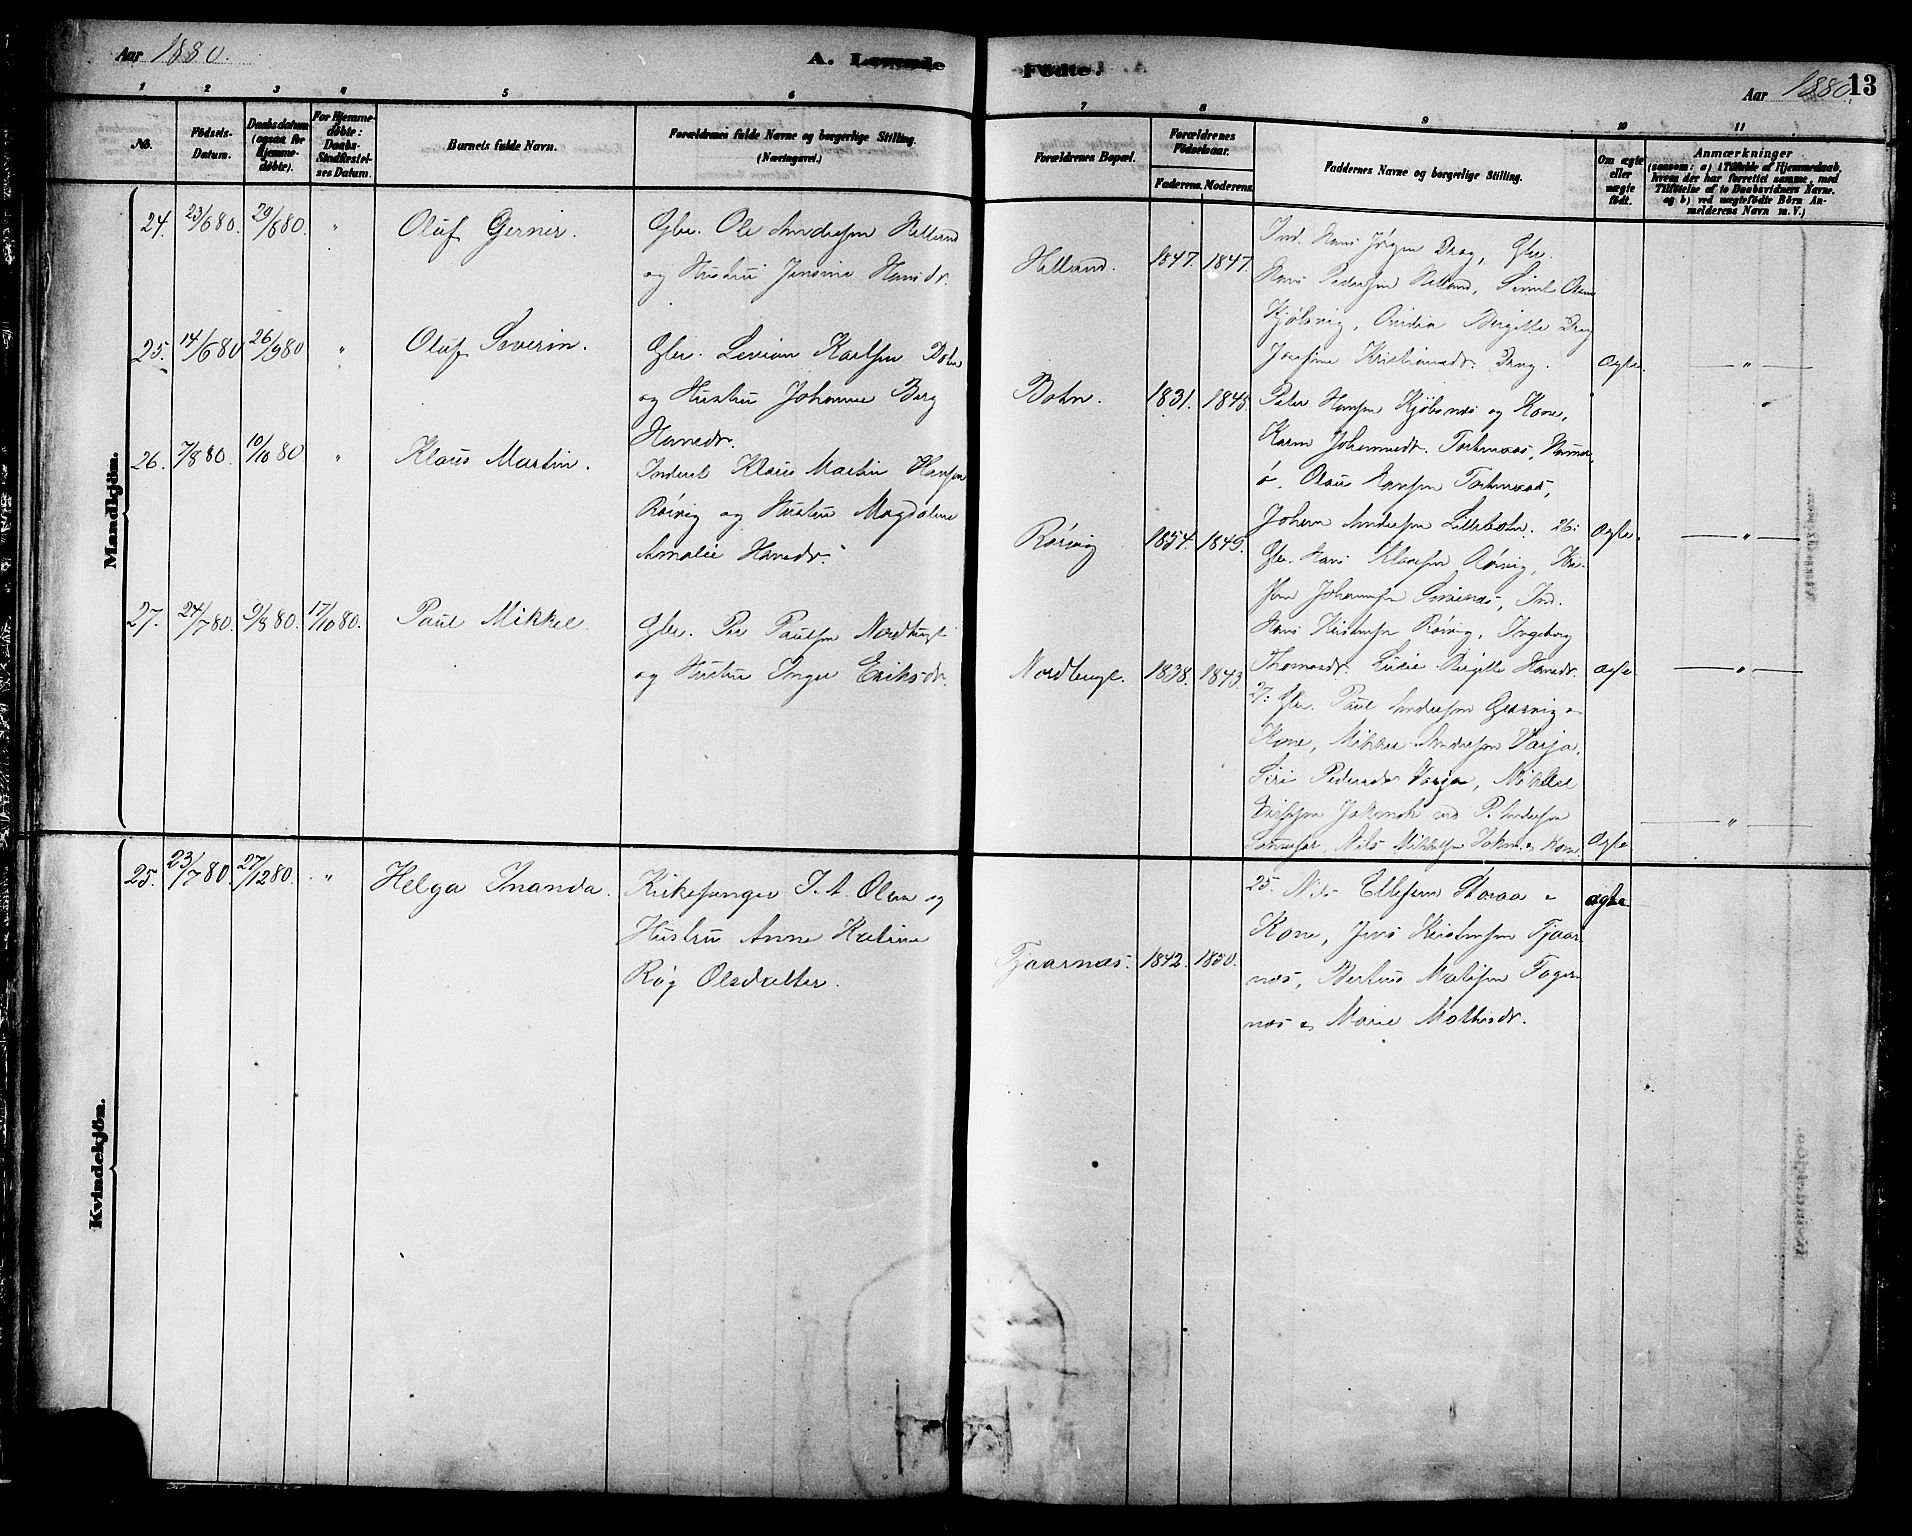 Aar 1880.
A. Levende Födte.
Aar 1880. 13
1 2 3 4 5 6 7 8 9 10 11
No.
Födsels-Datum.
Daabsdatum (ogsaa for Hjemme-döbte).
For Hjemme-döbte: Daabs-Stadfæstel-ses Datum.
Barnets fulde Navn.
Forældrenes fulde Navne og borgerlige Stilling. (Næringsvei.)
Forældrenes Bopæl.
Forældrenes Födselsaar.
Faderens. Moderens.
Faddernes Navne og borgerlige Stilling.
Om ægte eller uægte födt.
Anmærkninger
(saasom: a) i Tilfælde af Hjemmedaab,
hvem der har forrettet samme, med
Tilföielse af to Daabsvidners Navne.
og b) ved uægtefödte Börn An-
melderens Navn m. V.)
Mandkjön.
24. 23/6 80. 29/8 80. " Oluf Gerner
Gbr. Ole Andersen Helland
og Hustru Jensine Hansdr.
Helland. 1847. 1847.
Ind. Hans Jørgen Drag, Gbr.
Hans Pedersen Helland, Olsen
Kjøbsvig, Bergitte Drag
Josefine Kristiansdr. Drag. Ægte. "
25. 14/6 80 26/9 80 " Oluf Severin.
Gbr. Karlsen Botn
og Hustru Johanna Berg
Hansdr.
Botn. 1831. 1843.
Peter Hansen Kjøbsnæs og Kone,
Karen Johannesdr. Tortenæs,
Olaus Hansen Tortenæs,
Johan Andersen Lillebotn. Ægte. "
26. 7/8 80. 10/10 80 " Klaus Martin.
Inderst Klaus Martin Hansen
Rørvig og Hustru Magdalena
Amalie Hansdr.
Rørvig 1854. 1849.
26:
Gbr. Hans Klausen Rørvig,
Johannesen Ind.
Hans Kristensen Rørvig, Ingeborg
Thomasdr. Birgitte Hansdr. Ægte "
27. 24/7 80. 9/8 80. 17/10 80. Paul Mikkel.
Gbr. Per Paulsen Nordbugt
og Hustru Inger Eriksdr.
Nordbugt. 1838. 1843.
27: Gbr. Paul Andersen
Kone, Mikkel Andersen Varja,
Siri Pedersdr. Varja, Mikkel
P. Andersen
Nils Mikkelsen Kone. Ægte "
Kvindekjön.
25. 23/7 80. 27/12 80. " Helga Amanda.
Kirkesanger J. A. Olsen og
Hustru Anne Katrine
Røg Olsdatter.
Tjaarnæs. 1842. 1850.
25. Nils Ellefsen Storaa
Kone, Jens Kristensen Tjaar-
næs, Berteus Matisen Fager-
næs Marie Mathisdr. ægte